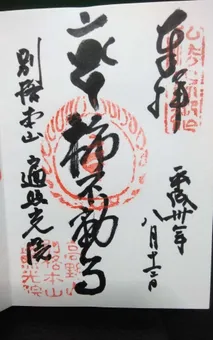 奉拝
平成卅年
八月十三日
柿不動尊
別格本山 遍照光院
高野山
別格本山
遍照光院